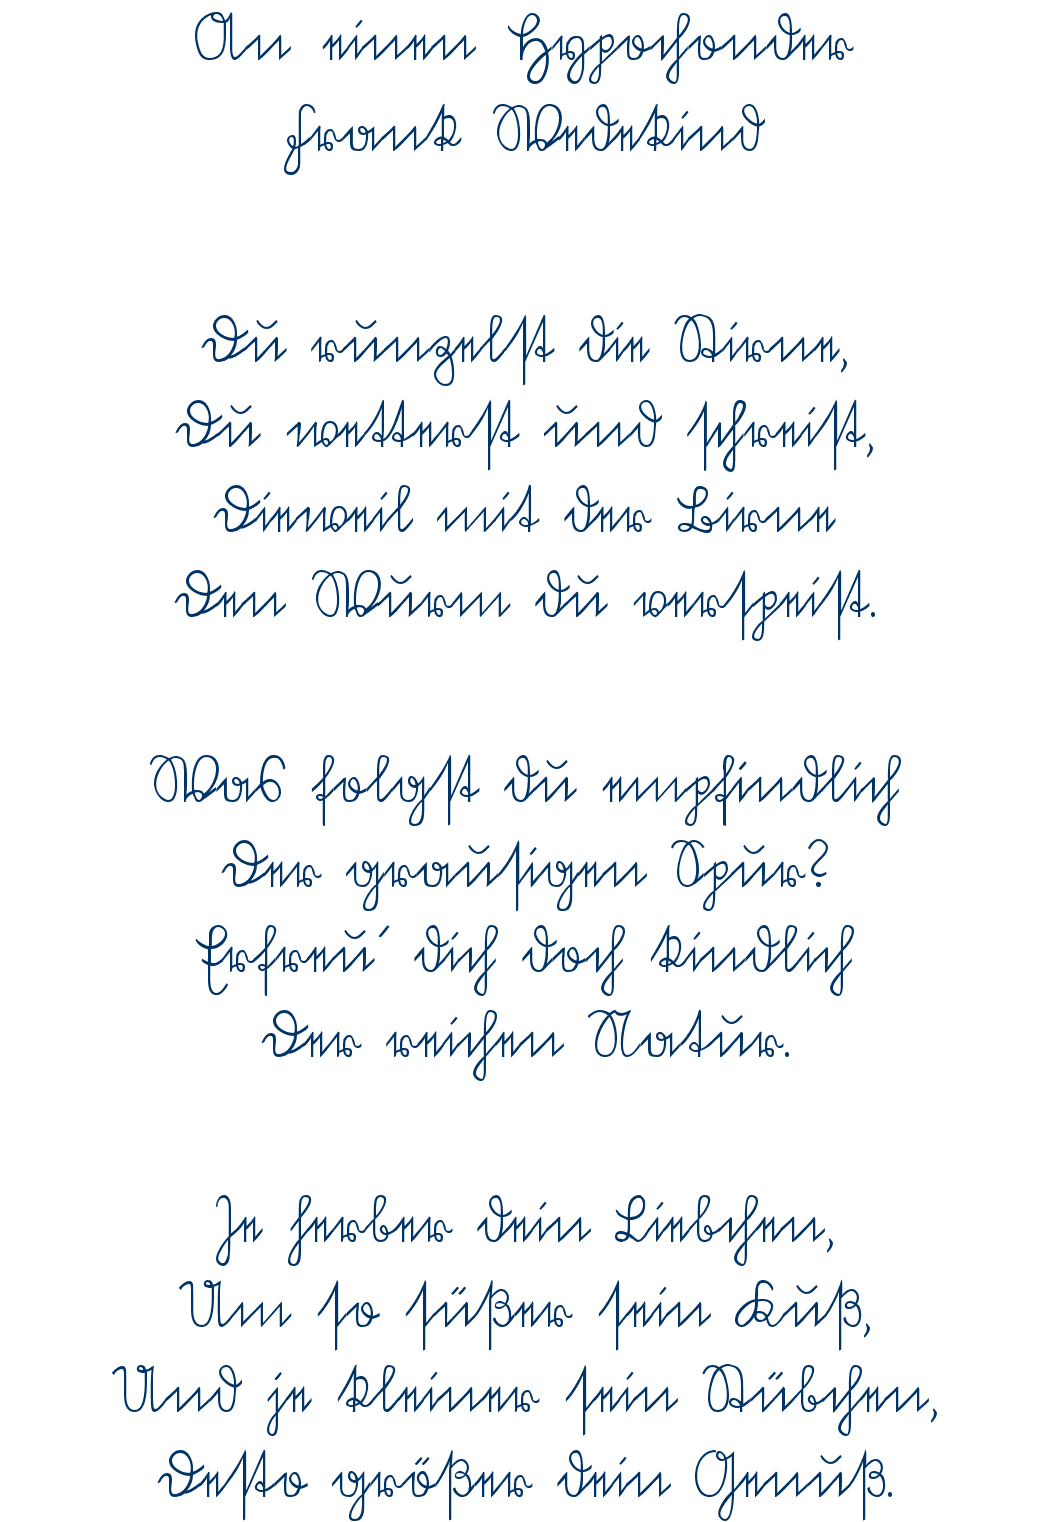 An einen Hypochonder
Frank Wedekind
Du runzelst die Stirne,
Du wetterst und schreist,
Dieweil mit der Birne
Den Wurm du verspeist.
Was folgst du empfindlich
Der grausigen Spur?
Erfreu´ dich doch kindlich
Der reichen Natur.
Je herber dein Liebchen,
Um so süßer sein Kuß,
Und je kleiner sein Stübchen,
Desto größer dein Genuß.